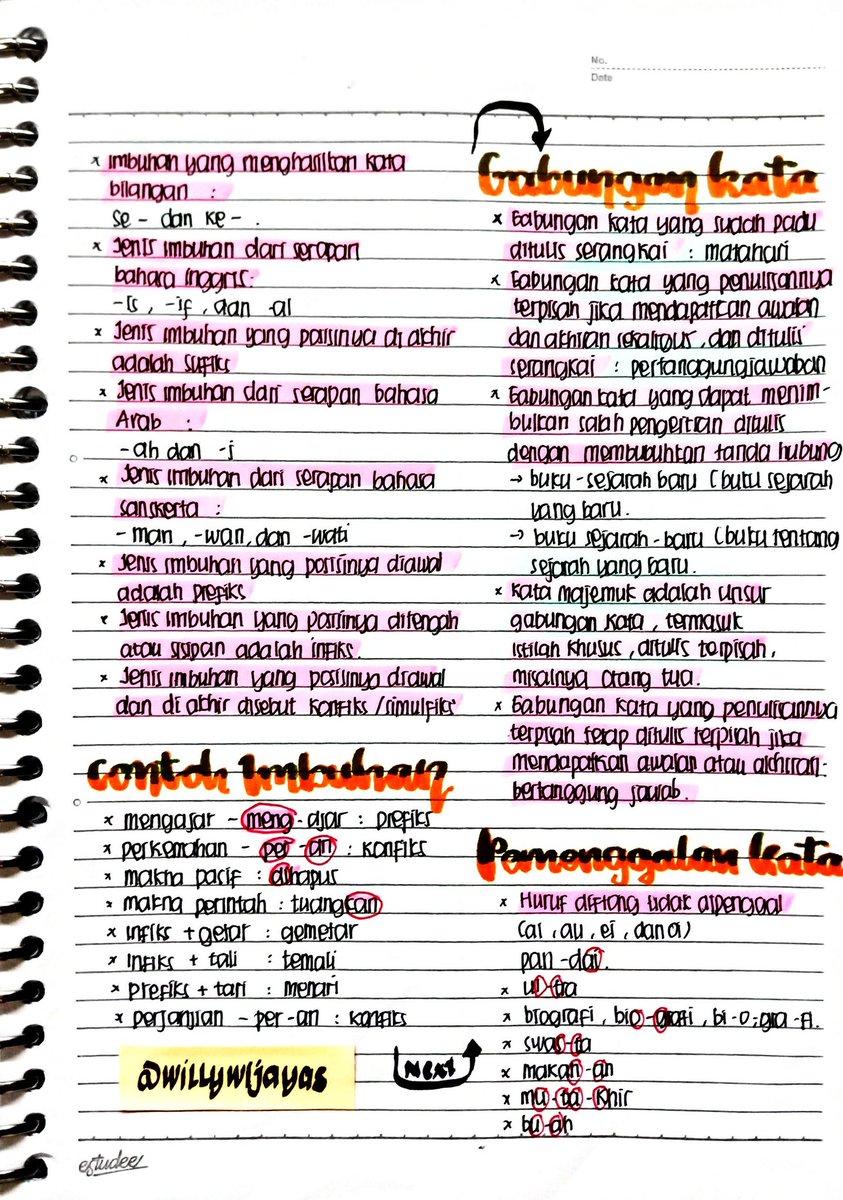 No.
Date
× Imbuhan yang menghasilkan kata
bilangan :
se - dan ke - .
× Jenis imbuhan dari serapan
bahasa Inggris:
-is , -if , dan -al
× Jenis imbuhan yang posisinya di akhir
adalah sufiks
× Jenis imbuhan dari serapan bahasa
Arab :
-ah dan -i
× Jenis imbuhan dari serapan bahasa
sanskerta :
- man , -wan, dan -wati
× Jenis imbuhan yang posisinya diawal
adalah prefiks
× Jenis imbuhan yang posisinya ditengah
atau sisipan adalah infiks.
× Jenis imbuhan yang posisinya diawal
dan di akhir disebut konfiks /simulfiks
Contoh Imbuhan
× mengajar - meng - ajar : prefiks
× perkemahan - per - an : konfiks
× makna pasif : dihapus
× makna perintah : tuangkan
× infiks + getar : gemetar
× infiks + tali : temali
× prefiks + tari : menari
× perjanjian - per - an : konfiks
@willywijayas
NEXT
estudee
Gabungan kata
× Gabungan kata yang sudah padu
ditulis serangkai : matahari
× Gabungan kata yang penulisannya
terpisah jika mendapatkan awalan
dan akhiran sekaligus , dan ditulis
serangkai : pertanggungjawaban
× Gabungan kata yang dapat menim-
bulkan salah pengertian ditulis
dengan membubuhkan tanda hubung
→ buku - sejarah baru (buku sejarah
yang baru.
→ buku sejarah - baru (buku tentang
sejarah yang baru.
× Kata majemuk adalah unsur
gabungan kata , termasuk
istilah khusus , ditulis terpisah ,
misalnya orang tua.
× Gabungan kata yang penulisannya
terpisah tetap ditulis terpisah jika
mendapatkan awalan atau akhiran:
bertanggung jawab.
Pemenggalan Kata
× Huruf diftong tidak dipenggal
(ai , au , ei , dan oi)
pan - dai .
× ul - tra
× biografi , bio - grafi , bi - o - gra - fi.
× swas - ta
× makan - an
× mu - ta - khir
× bu - ah